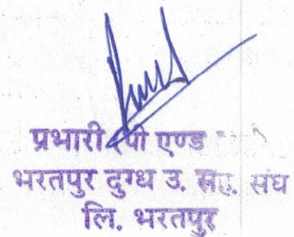 प्रभारी पी एण्ड
भरतपुर दुग्ध उ. सह. संघ
लि. भरतपुर